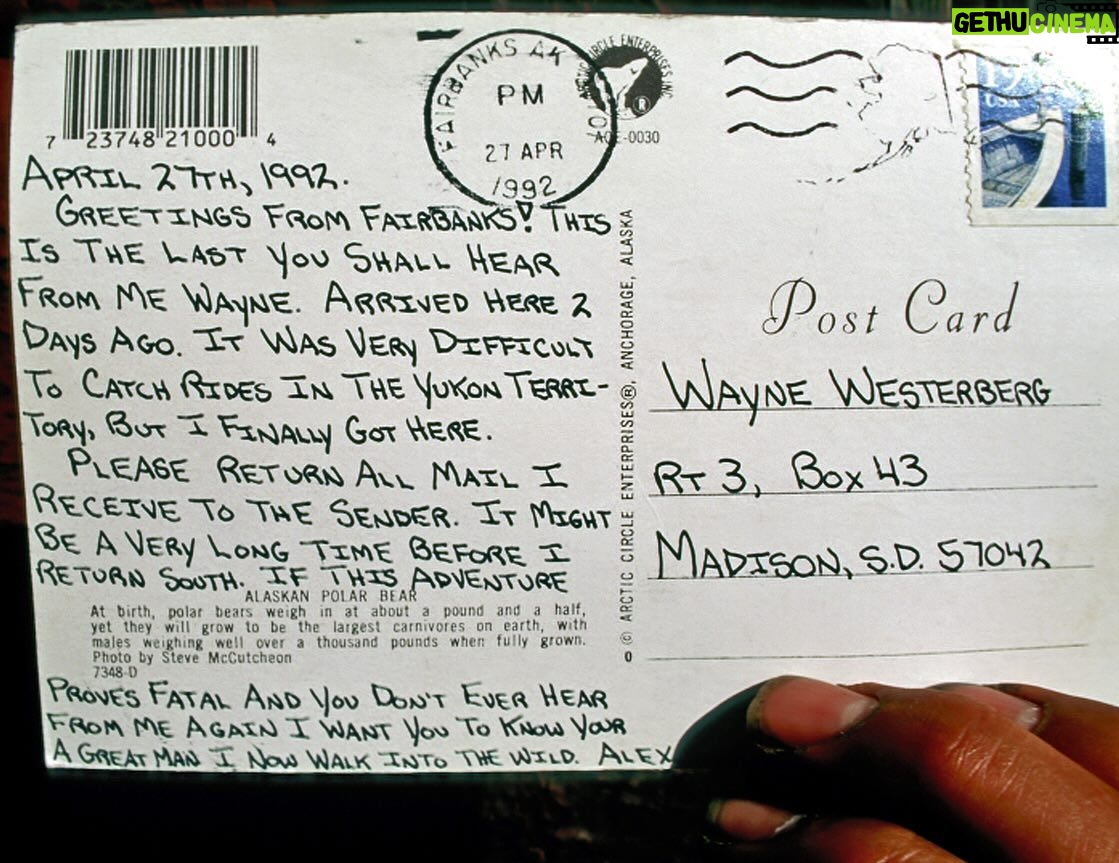 GETHUCINEMA
7 23748 21000 4
FAIRBANKS AK
PM
27 APR
1992
CIRCLE ENTERPRISES INC
®
ACE-0030
19
USA
APRIL 27TH, 1992.
GREETINGS FROM FAIRBANKS! THIS
IS THE LAST YOU SHALL HEAR
FROM ME WAYNE. ARRIVED HERE 2
DAYS AGO. IT WAS VERY DIFFICULT
TO CATCH RIDES IN THE YUKON TERRI-
TORY, BUT I FINALLY GOT HERE.
PLEASE RETURN ALL MAIL I
RECEIVE TO THE SENDER. IT MIGHT
BE A VERY LONG TIME BEFORE I
RETURN SOUTH. IF THIS ADVENTURE
ALASKAN POLAR BEAR
At birth, polar bears weigh in at about a pound and a half,
yet they will grow to be the largest carnivores on earth, with
males weighing well over a thousand pounds when fully grown.
Photo by Steve McCutcheon
7348-D
PROVES FATAL AND YOU DON'T EVER HEAR
FROM ME AGAIN I WANT YOU TO KNOW YOUR
A GREAT MAN I NOW WALK INTO THE WILD. ALEX
© ARCTIC CIRCLE ENTERPRISES®, ANCHORAGE, ALASKA
Post Card
WAYNE WESTERBERG
RT 3, BOX 43
MADISON, S.D. 57042